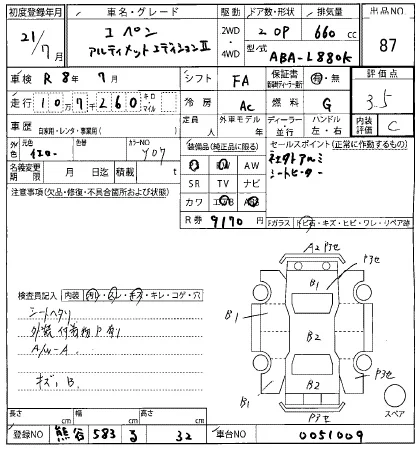 初度登録年月 車名・グレード 駆動 ドア数・形状 排気量 出品NO
21/7月 コペン 2WD 4WD 2 OP 660 cc 87
アルティメットエディションII 型式 ABA-L880K
車検 R 8年 7月 シフト FA 保証書 有・無 評価点
走行 10万7千260 キロ・マイル 冷房 AC 燃料 G 3.5
車歴 自家用・レンタ・事業用( ) 定員 人 外車モデル 年 ディーラー・並行 ハンドル 左・右 内装 C
外色 元色 イエロー 色替 カラーNO Y07 装備品(純正品に限る) セールスポイント(正常に作動するもの)
PS PW AW
名義変更期限 月 日迄 積載 t SR TV ナビ シートヒーター
注意事項(欠品・修復・不具合箇所および状態) カワ エアB ABS
R券 9170 円 Fガラス トビ石・キズ・ヒビ・ワレ・リペア跡
A2 P3セ
P3セ
B1
検査員記入 内装 汚レ・スレ・キズ・キレ・コゲ・穴
シートヘタリ B1 B2
A/W-A
キズ、B. B2 P3セ
B1 P3セ スペア
長さ cm 幅 cm 高さ cm
登録NO 熊谷 583 る 32 車台NO 0051009